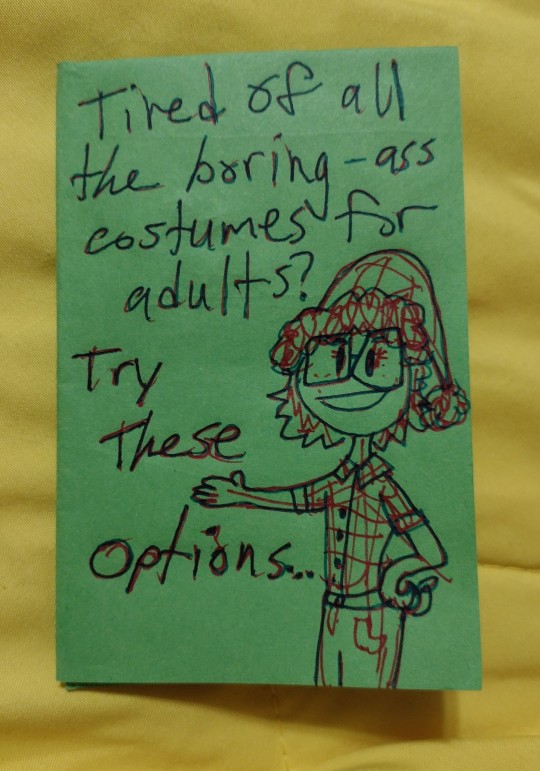 Tired of all
the boring-ass
costumes for
adults?
Try
These
Options...